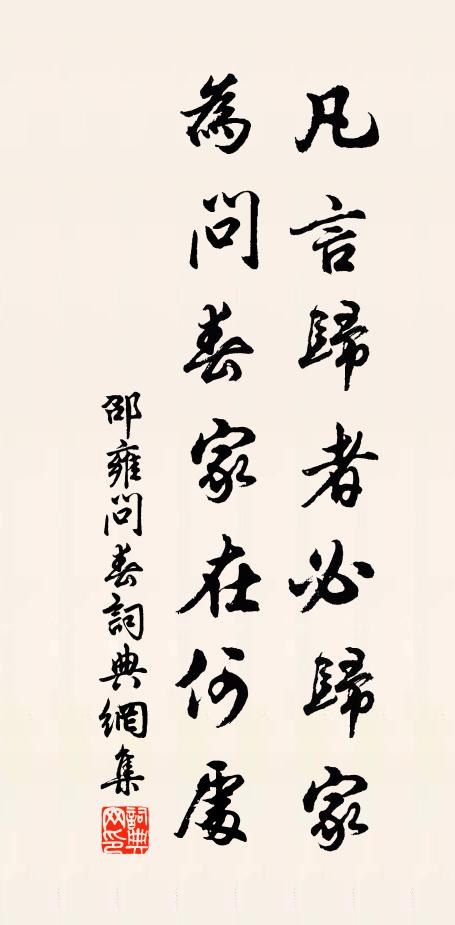 凡言歸者必歸家
為問春家在何處
邵雍問春詞典網集
詞典網印